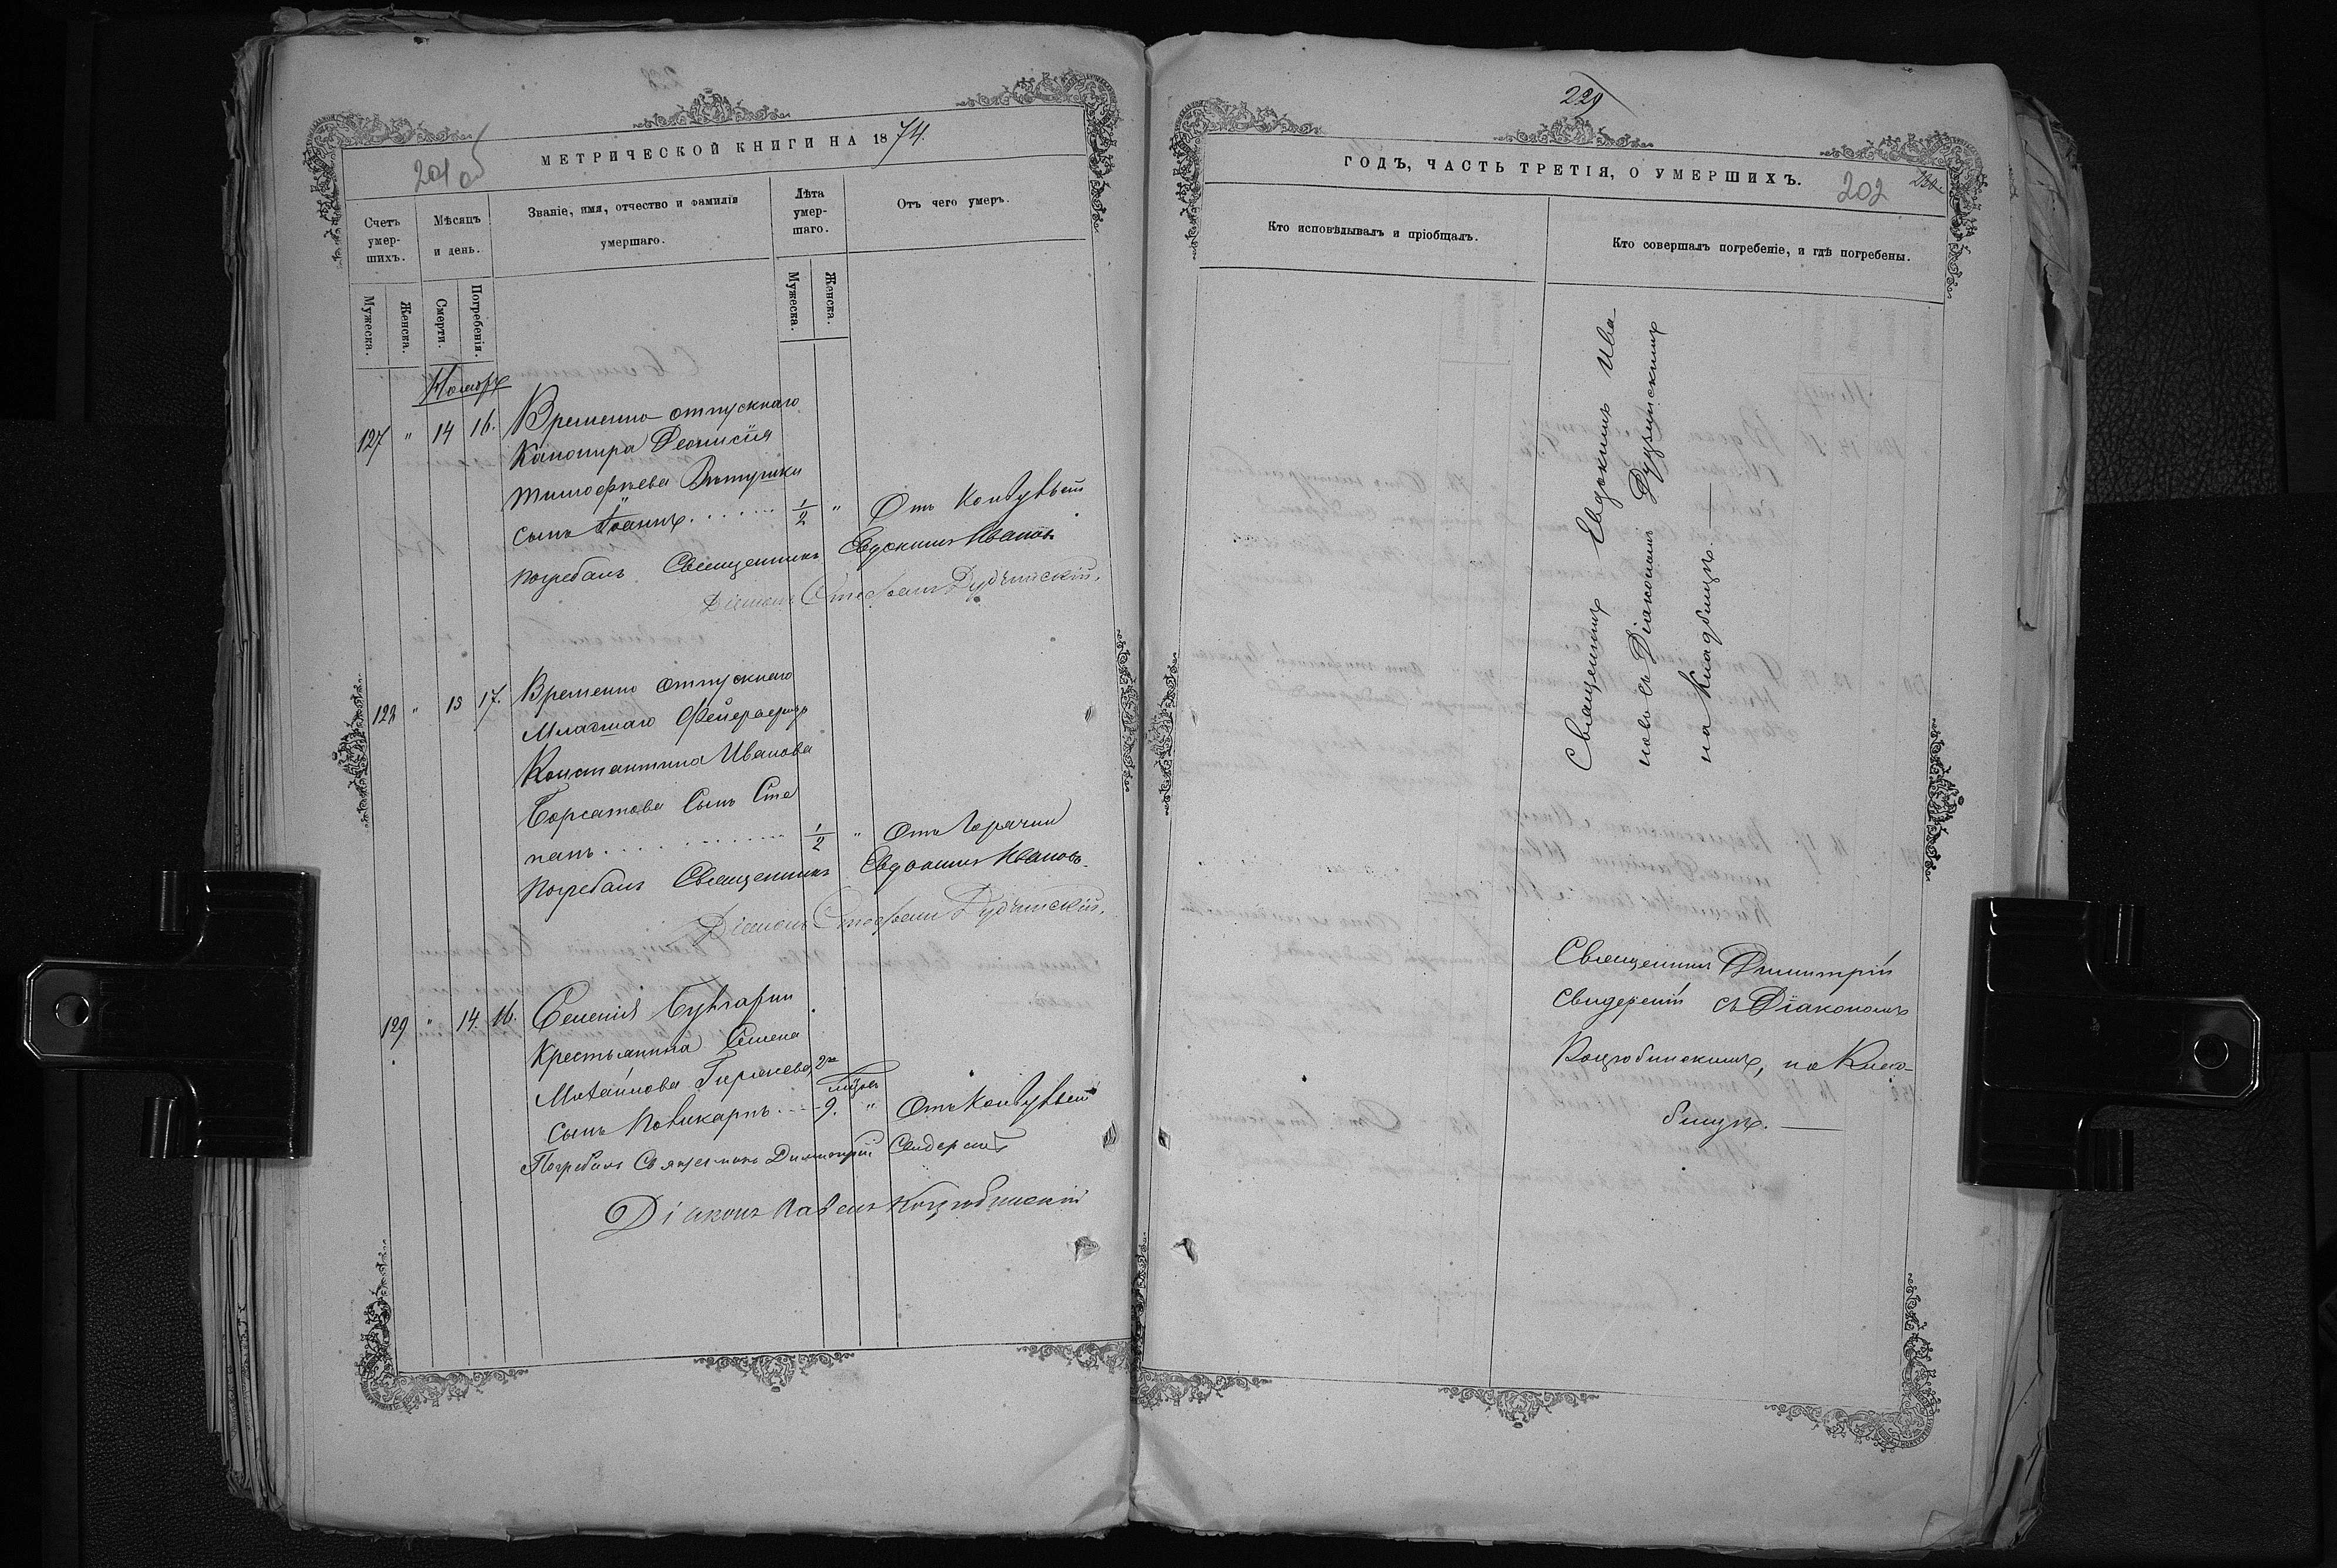 201 об
МЕТРИЧЕСКОЙ КНИГИ НА 1874
Счетъ умер-шихъ.
Мѣсяцъ и день.
Званіе, имя, отчество и фамилія умершаго.
Лѣта умер-шаго.
Отъ чего умеръ.
Мужеска.
Женска.
Смерти.
Погребенія.
Мужеска.
Женска.
Ноябрь
127 " 14 16. Временно-отпускнаго
Канонира Деонисія
Тимофѣева
сынъ Іоаннъ. . . . . . . 1/2 " Отъ Конвульсій
погребалъ Священникъ Евдокимъ Ивановъ.
Діаконъ Стефанъ
128 " 13 17. Временно отпускнаго
Младшаго Фейерверкера
Константина Иванова
сынъ Сте
панъ. . . . . . . . . . . . 1/2 " Отъ Горячки
погребалъ Священникъ Евдокимъ Ивановъ.
Діаконъ Стефанъ
129 " 14. 16. Селенія
Крестьянина Семена
Михайлова
сынъ Поликарпъ. 9. " Отъ Конвульсій
Погребалъ Священникъ Димитрій Свидерскій
Діаконъ Павелъ Коцюбинскій
229
ГОДЪ, ЧАСТЬ ТРЕТІЯ, О УМЕРШИХЪ.
202
Кто исповѣдывалъ и пріобщалъ.
Кто совершалъ погребеніе, и гдѣ погребены.
Священникъ Евдокимъ Ива-
новъ съ Діакономъ
на Кладбищѣ.
Священникъ Димитрій
Свидерскій съ Діакономъ
Коцюбинскимъ, на Клад-
бищѣ.